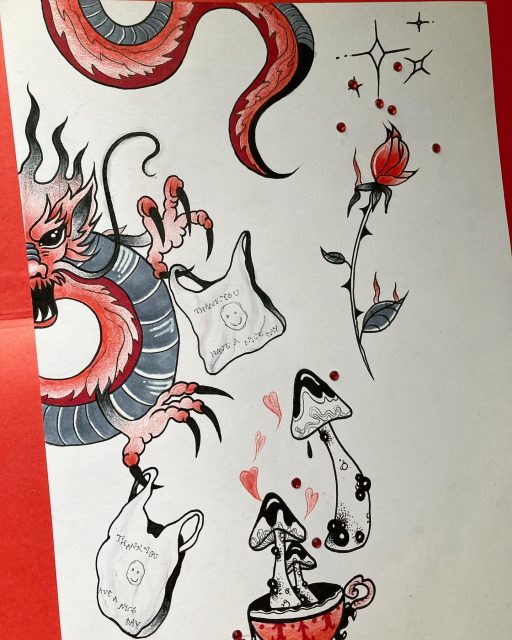 THANK YOU
HAVE A NICE DAY
THANK YOU
AVE A NICE
DAY